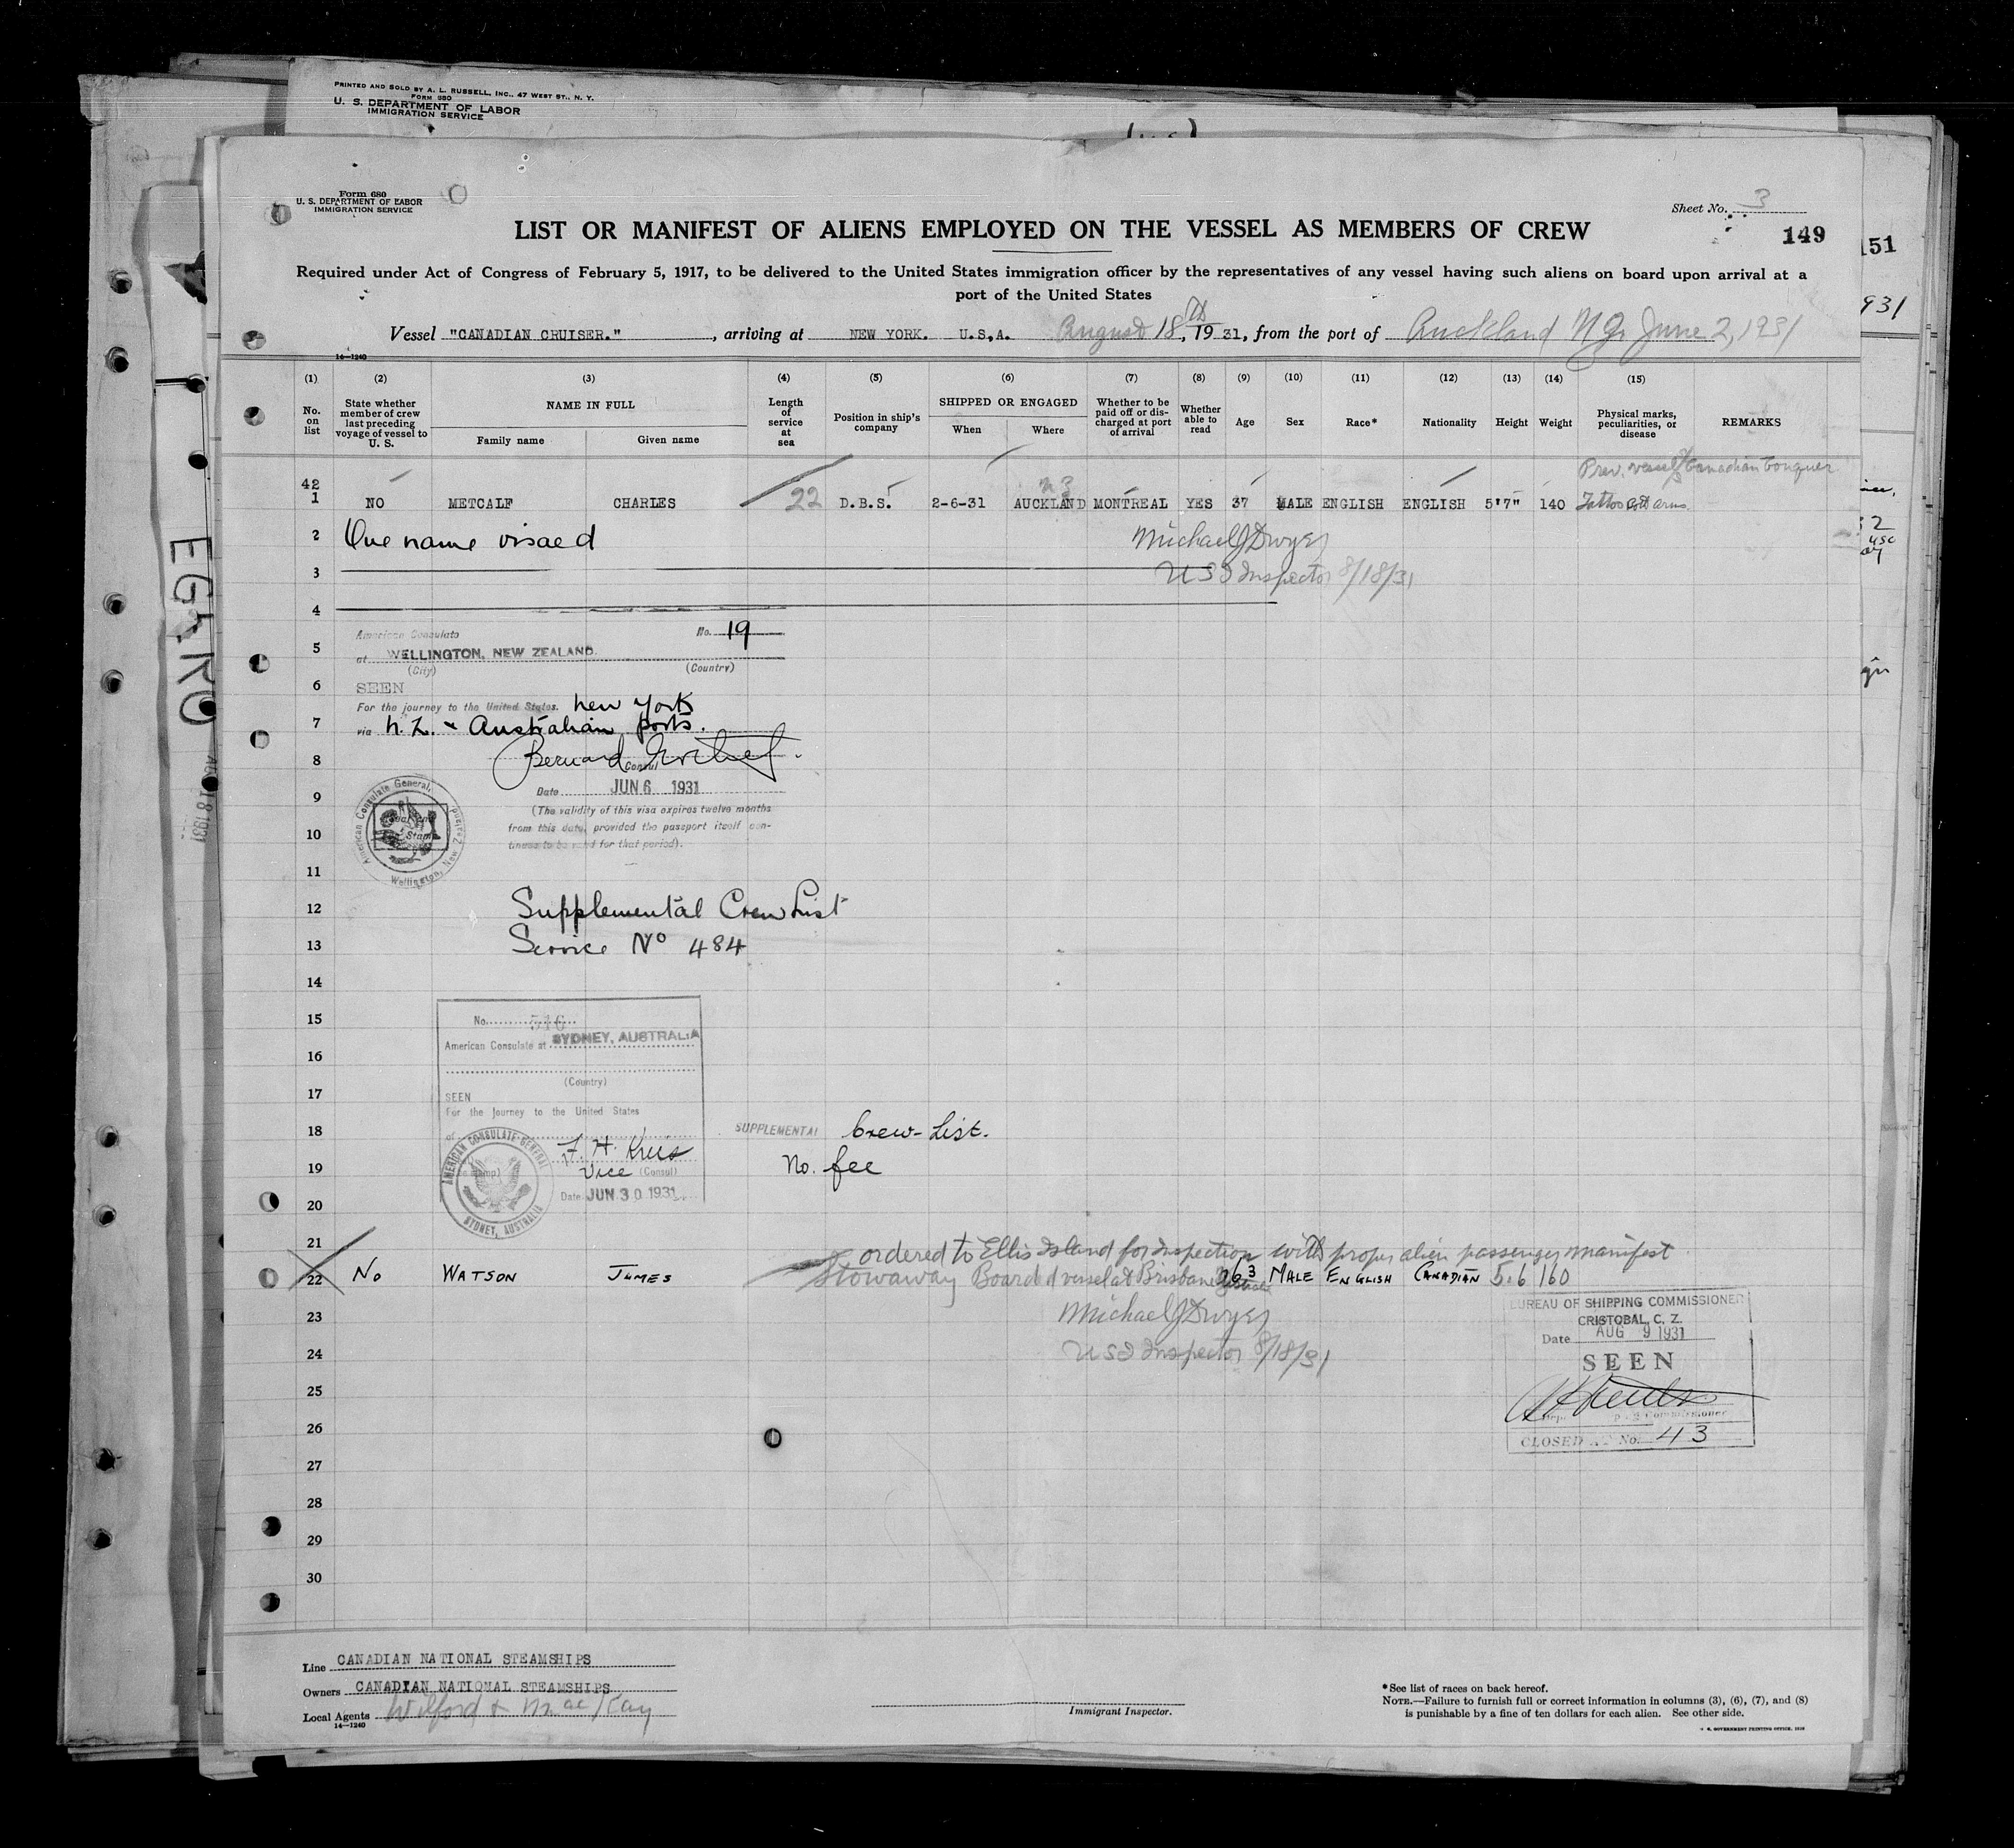 PRINTED AND SOLD BY A. L. RUSSELL, INC., 47 WEST ST., N. Y.
FORM 680
U. S. DEPARTMENT OF LABOR
IMMIGRATION SERVICE
Form 680
U. S. DEPARTMENT OF LABOR
IMMIGRATION SERVICE
Sheet No. 3
LIST OR MANIFEST OF ALIENS EMPLOYED ON THE VESSEL AS MEMBERS OF CREW
149
151
Required under Act of Congress of February 5, 1917, to be delivered to the United States immigration officer by the representatives of any vessel having such aliens on board upon arrival at a
port of the United States
931
Vessel "CANADIAN CRUISER." , arriving at NEW YORK. U.S.A. August 18th, 1931, from the port of Auckland N Z June 2, 1931
14—1240
(1) (2) (3) (4) (5) (6) (7) (8) (9) (10) (11) (12) (13) (14) (15)
No. on list
State whether member of crew last preceding voyage of vessel to U. S.
NAME IN FULL
Family name
Given name
Length of service at sea
Position in ship's company
SHIPPED OR ENGAGED
When
Where
Whether to be paid off or discharged at port of arrival
Whether able to read
Age
Sex
Race*
Nationality
Height
Weight
Physical marks, peculiarities, or disease
REMARKS
Prev. vessel S/S Canadian Conquer
42 NZ
1 NO METCALF CHARLES 22 D.B.S. 2-6-31 AUCKLAND MONTREAL YES 37 MALE ENGLISH ENGLISH 5'7" 140 Tattoo both arms
2 One name visaed Michael J Dwyer
3 USI Inspector 8/18/31
4
American Consulate No. 19
5 at WELLINGTON, NEW ZEALAND.
(City) (Country)
6 SEEN
For the journey to the United States. New York
7 via N.Z. & Australian ports.
8 Bernard
Consul
Date JUN 6 1931
9 (The validity of this visa expires twelve months
10 from this date, provided the passport itself con-
tinues to be valid for that period).
American Consulate General, Wellington, New Zealand
11
12 Supplemental Crew List
13 Service No 484
14
15 No. 516
American Consulate at SYDNEY, AUSTRALIA
16
(Country)
17 SEEN
For the Journey to the United States
18 SUPPLEMENTAL Crew-List.
of
F. H. Kreis
19 Vice (Consul) No. fee
Date JUN 30 1931
AMERICAN CONSULATE GENERAL SYDNEY, AUSTRALIA
20
21 ordered to Ellis Island for Inspection with proper alien passenger manifest
22 No WATSON JAMES Stowaway Boarded vessel at Brisbane Australia 26 3 MALE ENGLISH CANADIAN 5.6 160
23 Michael J Dwyer
24 USI Inspector 8/18/31
BUREAU OF SHIPPING COMMISSIONER
CRISTOBAL, C. Z.
Date AUG 9 1931
SEEN
Commissioner
CLOSED AT No. 43
25
26
27
28
29
30
Line CANADIAN NATIONAL STEAMSHIPS
Owners CANADIAN NATIONAL STEAMSHIPS
Local Agents Wilford & MacKay
14—1240
Immigrant Inspector.
*See list of races on back hereof.
NOTE.—Failure to furnish full or correct information in columns (3), (6), (7), and (8)
is punishable by a fine of ten dollars for each alien. See other side.